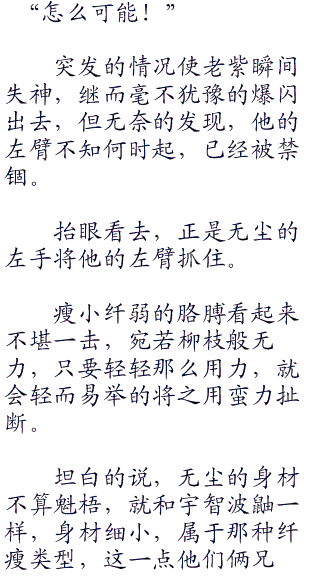 “怎么可能！”
突发的情况使老紫瞬间
失神，继而毫不犹豫的爆闪
出去，但无奈的发现，他的
左臂不知何时起，已经被禁
锢。
抬眼看去，正是无尘的
左手将他的左臂抓住。
瘦小纤弱的胳膊看起来
不堪一击，宛若柳枝般无
力，只要轻轻那么用力，就
会轻而易举的将之用蛮力扯
断。
坦白的说，无尘的身材
不算魁梧，就和宇智波鼬一
样，身材细小，属于那种纤
瘦类型，这一点他们俩兄